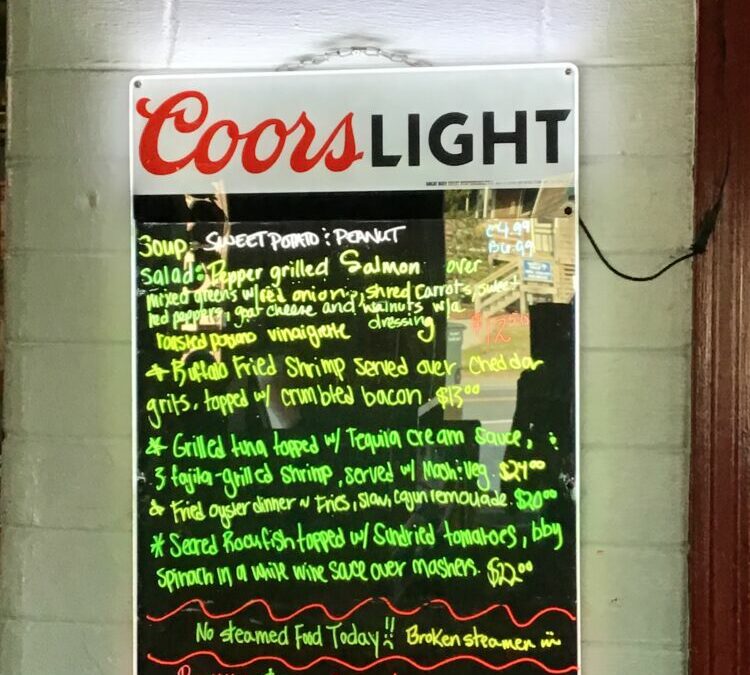 Coors LIGHT
Soup: SWEET POTATO & PEANUT C4.99
B6.99
Salad: Pepper grilled Salmon over
mixed greens w/red onion, shred carrots, sweet
red peppers, goat cheese and walnuts w/a
roasted potato vinaigrette dressing $12.00
* Buffalo Fried Shrimp served over Cheddar
grits, topped w/ crumbled bacon. $13.00
* Grilled tuna topped w/ Tequila cream sauce, &
3 fajita-grilled shrimp, served w/ Mash & Veg. $24.00
& Fried oyster dinner ~ Fries, slaw, cajun remoulade. $20.00
* Seared Rockfish topped w/ Sundried tomatoes, bby
spinach in a white wine sace over mashers. $22.00
No steamed Food Today!! Broken steamer